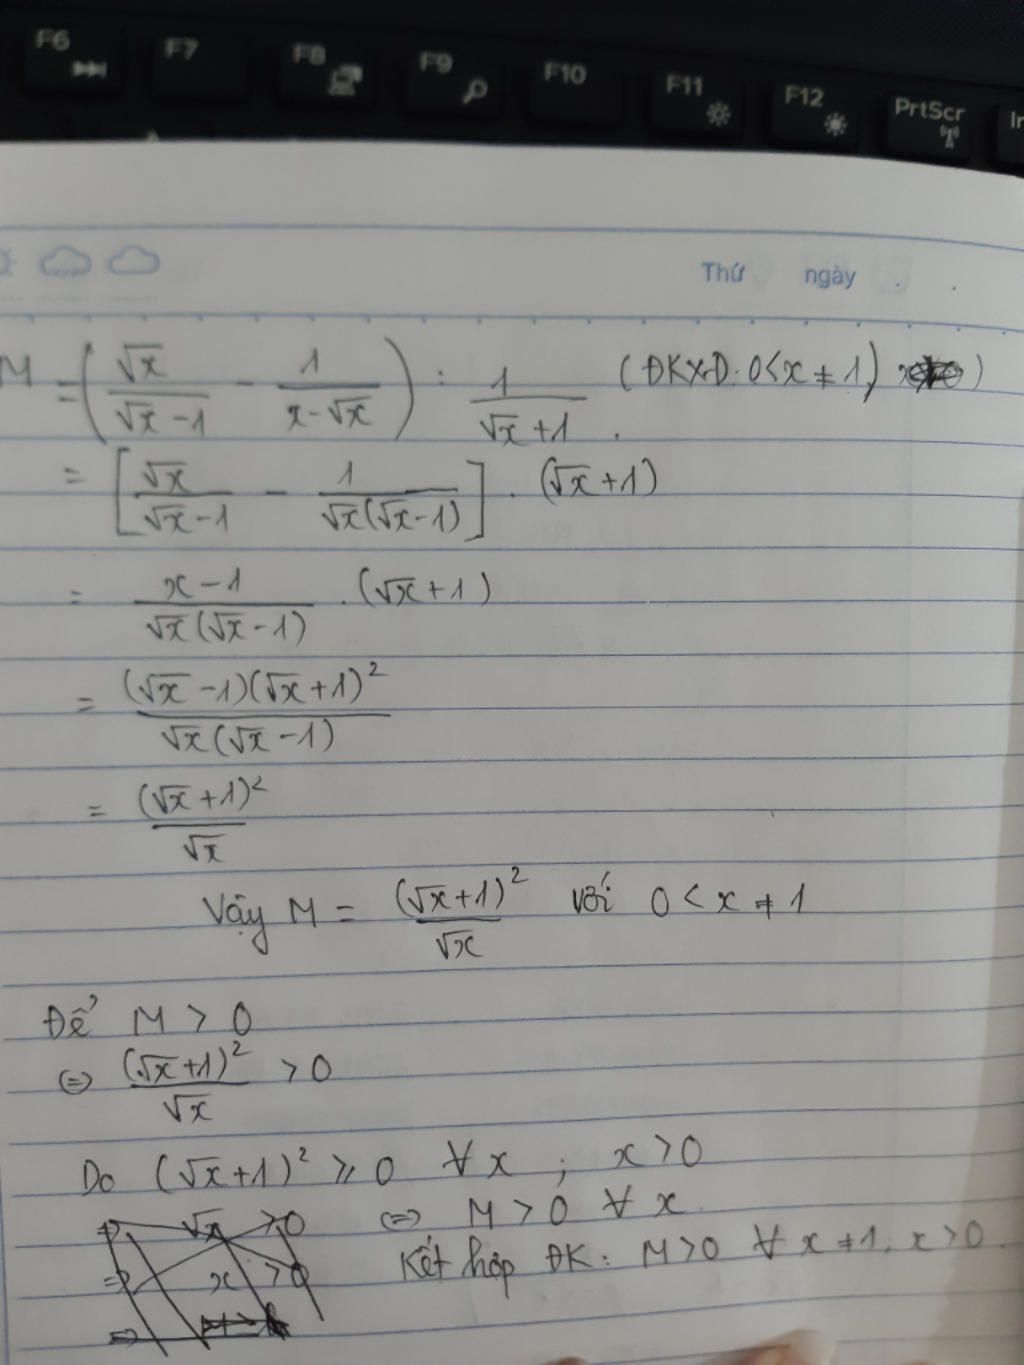 F6 F7 F8 F9 F10 F11 F12 PrtScr
Thứ ngày
M = (√x/(√x-1) - 1/(x-√x)) : 1/(√x+1) (ĐKXĐ: 0<x≠1)
= [√x/(√x-1) - 1/(√x(√x-1))] . (√x+1)
= (x-1)/(√x(√x-1)) . (√x+1)
= (√x-1)(√x+1)²/(√x(√x-1))
= (√x+1)²/√x
Vậy M = (√x+1)²/√x với 0 < x ≠ 1
Để M > 0
⇔ (√x+1)²/√x > 0
Do (√x+1)² ⩾ 0 ∀x ; x>0
⇒ √x > 0 ⇔ M > 0 ∀x.
⇒ x > 0 Kết hợp ĐK: M>0 ∀x≠1, x>0.
⇒